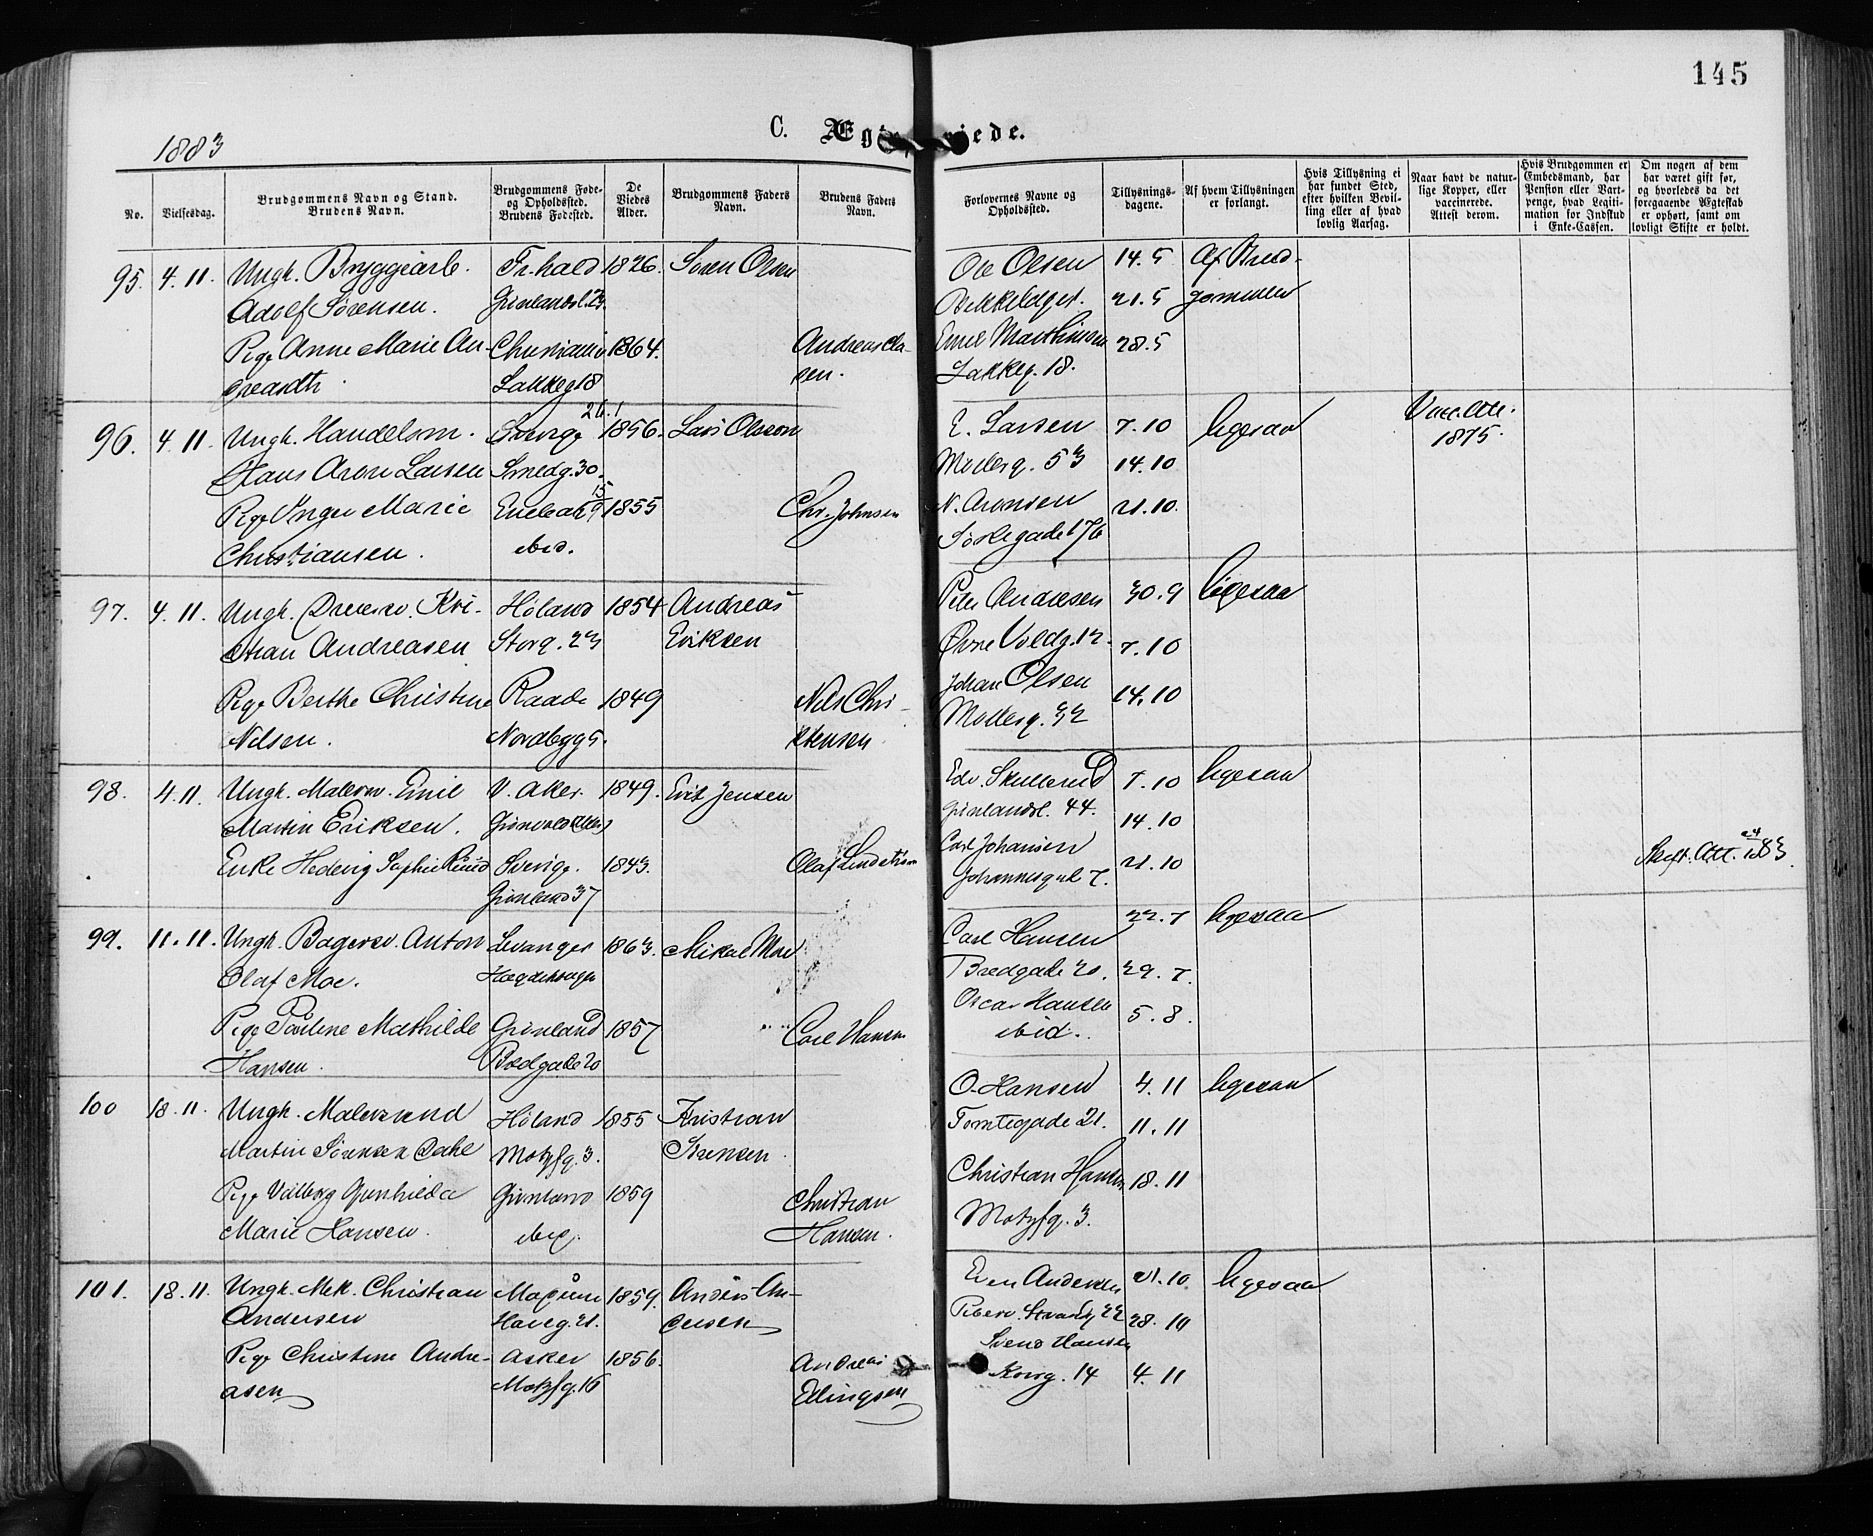 145
1883
C. Æg iede.
No.
Vielsesdag.
Brudgommens Navn og Stand.
Brudens Navn.
Brudgommens Føde-
og Opholdssted.
Brudens Fødested.
De
Viedes
Alder.
Brudgommens Faders
Navn.
Brudens Faders
Navn.
Forlovernes Navne og
Opholdssted.
Tillysnings-
dagene.
Af hvem Tillysningen
er forlangt.
Hvis Tillysning ei
har fundet Sted,
efter hvilken Bevil-
ling eller af hvad
lovlig Aarsag.
Naar havt de natur-
lige Kopper, eller
vaccinerede.
Attest derom.
Hvis Brudgommen er
Embedsmand, har
Pension eller Vart-
penge, hvad Legiti-
mation for Indskud
i Enke-Cassen.
Om nogen af dem
har været gift før,
og hvorledes da det
foregaaende Ægteskab
er ophørt, samt om
lovligt Skifte er holdt.
95. 4.11. Ungk. Bryggearb. Fr.hald 1826. Søren Olsen Ole Olsen 14.5 Af Brud-
Adolf Sørensen. Grønlandsl. 23. 21.5 gommen
Pige Anne Marie An- Christiania 1864. Andreas Cla- Emil Marthinsen 28.5
Lakkeg 18 sen. Lakkeg. 18.
96. 4.11. Ungk. Handelsm. Sverige 26.1 1856. Lars Olsson E. Larsen 7.10 ligesaa Vacc. Att. 1875.
Hans Aron Larsen Smedg. 30. Møllerg. 53 14.10
Pige Inger Marie Enebak 15/9 1855 Chr. Johnsen N. Aronsen 21.10.
Christiansen. ibid. 176
97. 4.11. Ungk. Kri- Høland 1854 Andreas Peter Andresen 30.9 ligesaa
stian Andreasen Storg. 23 Eriksen Øvre Voldg. 12. 7.10
Pige Berthe Christine Raade 1849 Nils Chri- Johan Olsen 14.10
Nilsen. Nordbygg 5. stensen Møllerg. 32
98. 4.11. Ungk. Malersv. Emil V. Aker 1849. Erik Jensen Edv. Skullerud 7.10 ligesaa
Martin Eriksen. Grønlandsl. 44. 14.10
Enke Hedevig Sophie Sverige. 1843. Olaf Lindstrøm Carl Johansen 21.10 Skift. Att. 83.
Grønland 37 Johannesgad 7.
99. 11.11. Ungk. Bagersv. Anton Levanger 1863. Mikal Moe Carl Hansen 22.7 ligesaa
Olaf Moe. Hægdehaugen Bredgade 20. 29.7.
Pige Pauline Mathilde Grønland 1857 Carl Hansen Oscar Hansen 5.8.
Hansen. Bredgade 20 ibid.
100 18.11. Ungk. Malersvend Høland 1855 Kristian O. Hansen 4.11 ligesaa
Martin Sørensen Dahl Motzfg. 3. Sørensen. Tomtegade 21. 11.11
Pige Valborg Gunhilda Grønland 1859 Christian Christian Hansen 18.11
Marie Hansen. ibid. Hansen. Motzfg. 3.
101. 18.11. Ungk. Mek. Christian 1859. Anders An- Even Andersen 21.10 ligesaa
Andersen Haveg. 21. dersen 22 28.10
Pige Christine Andre- Asker 1856. Andreas Svend Hansen
asen Motzfg. 16 Edingsen Korsg. 14 4.11